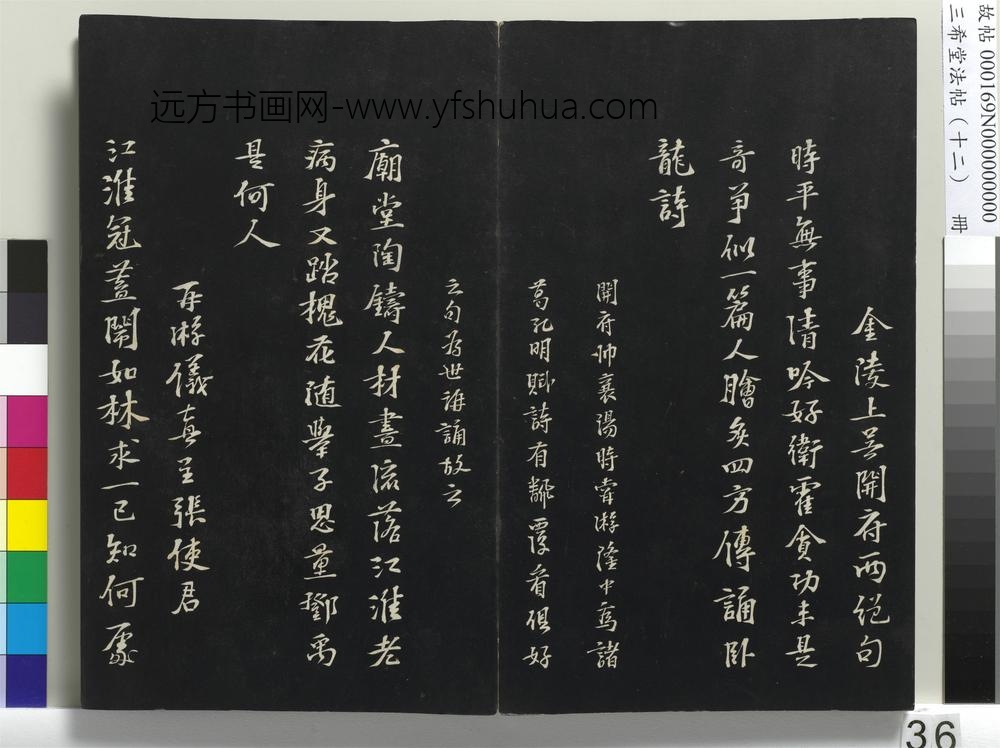 远方书画网-www.yfshuhua.com
故帖 000169N000000000
三希堂法帖（十二） 冊
金陵上吳開府兩絕句
時平無事清吟好衛霍貪功未是
奇爭似一篇人膾炙四方傳誦卧
龍詩
開府帥襄陽時嘗游隆中為諸
葛孔明賦詩有翻覆看俱好
之句為世誦故云
廟堂陶鑄人材盡流落江淮老
病身又踏槐花随舉子思量鄧禹
是何人
再游儀真呈張使君
江淮冠蓋鬧如林求一已知何處
36